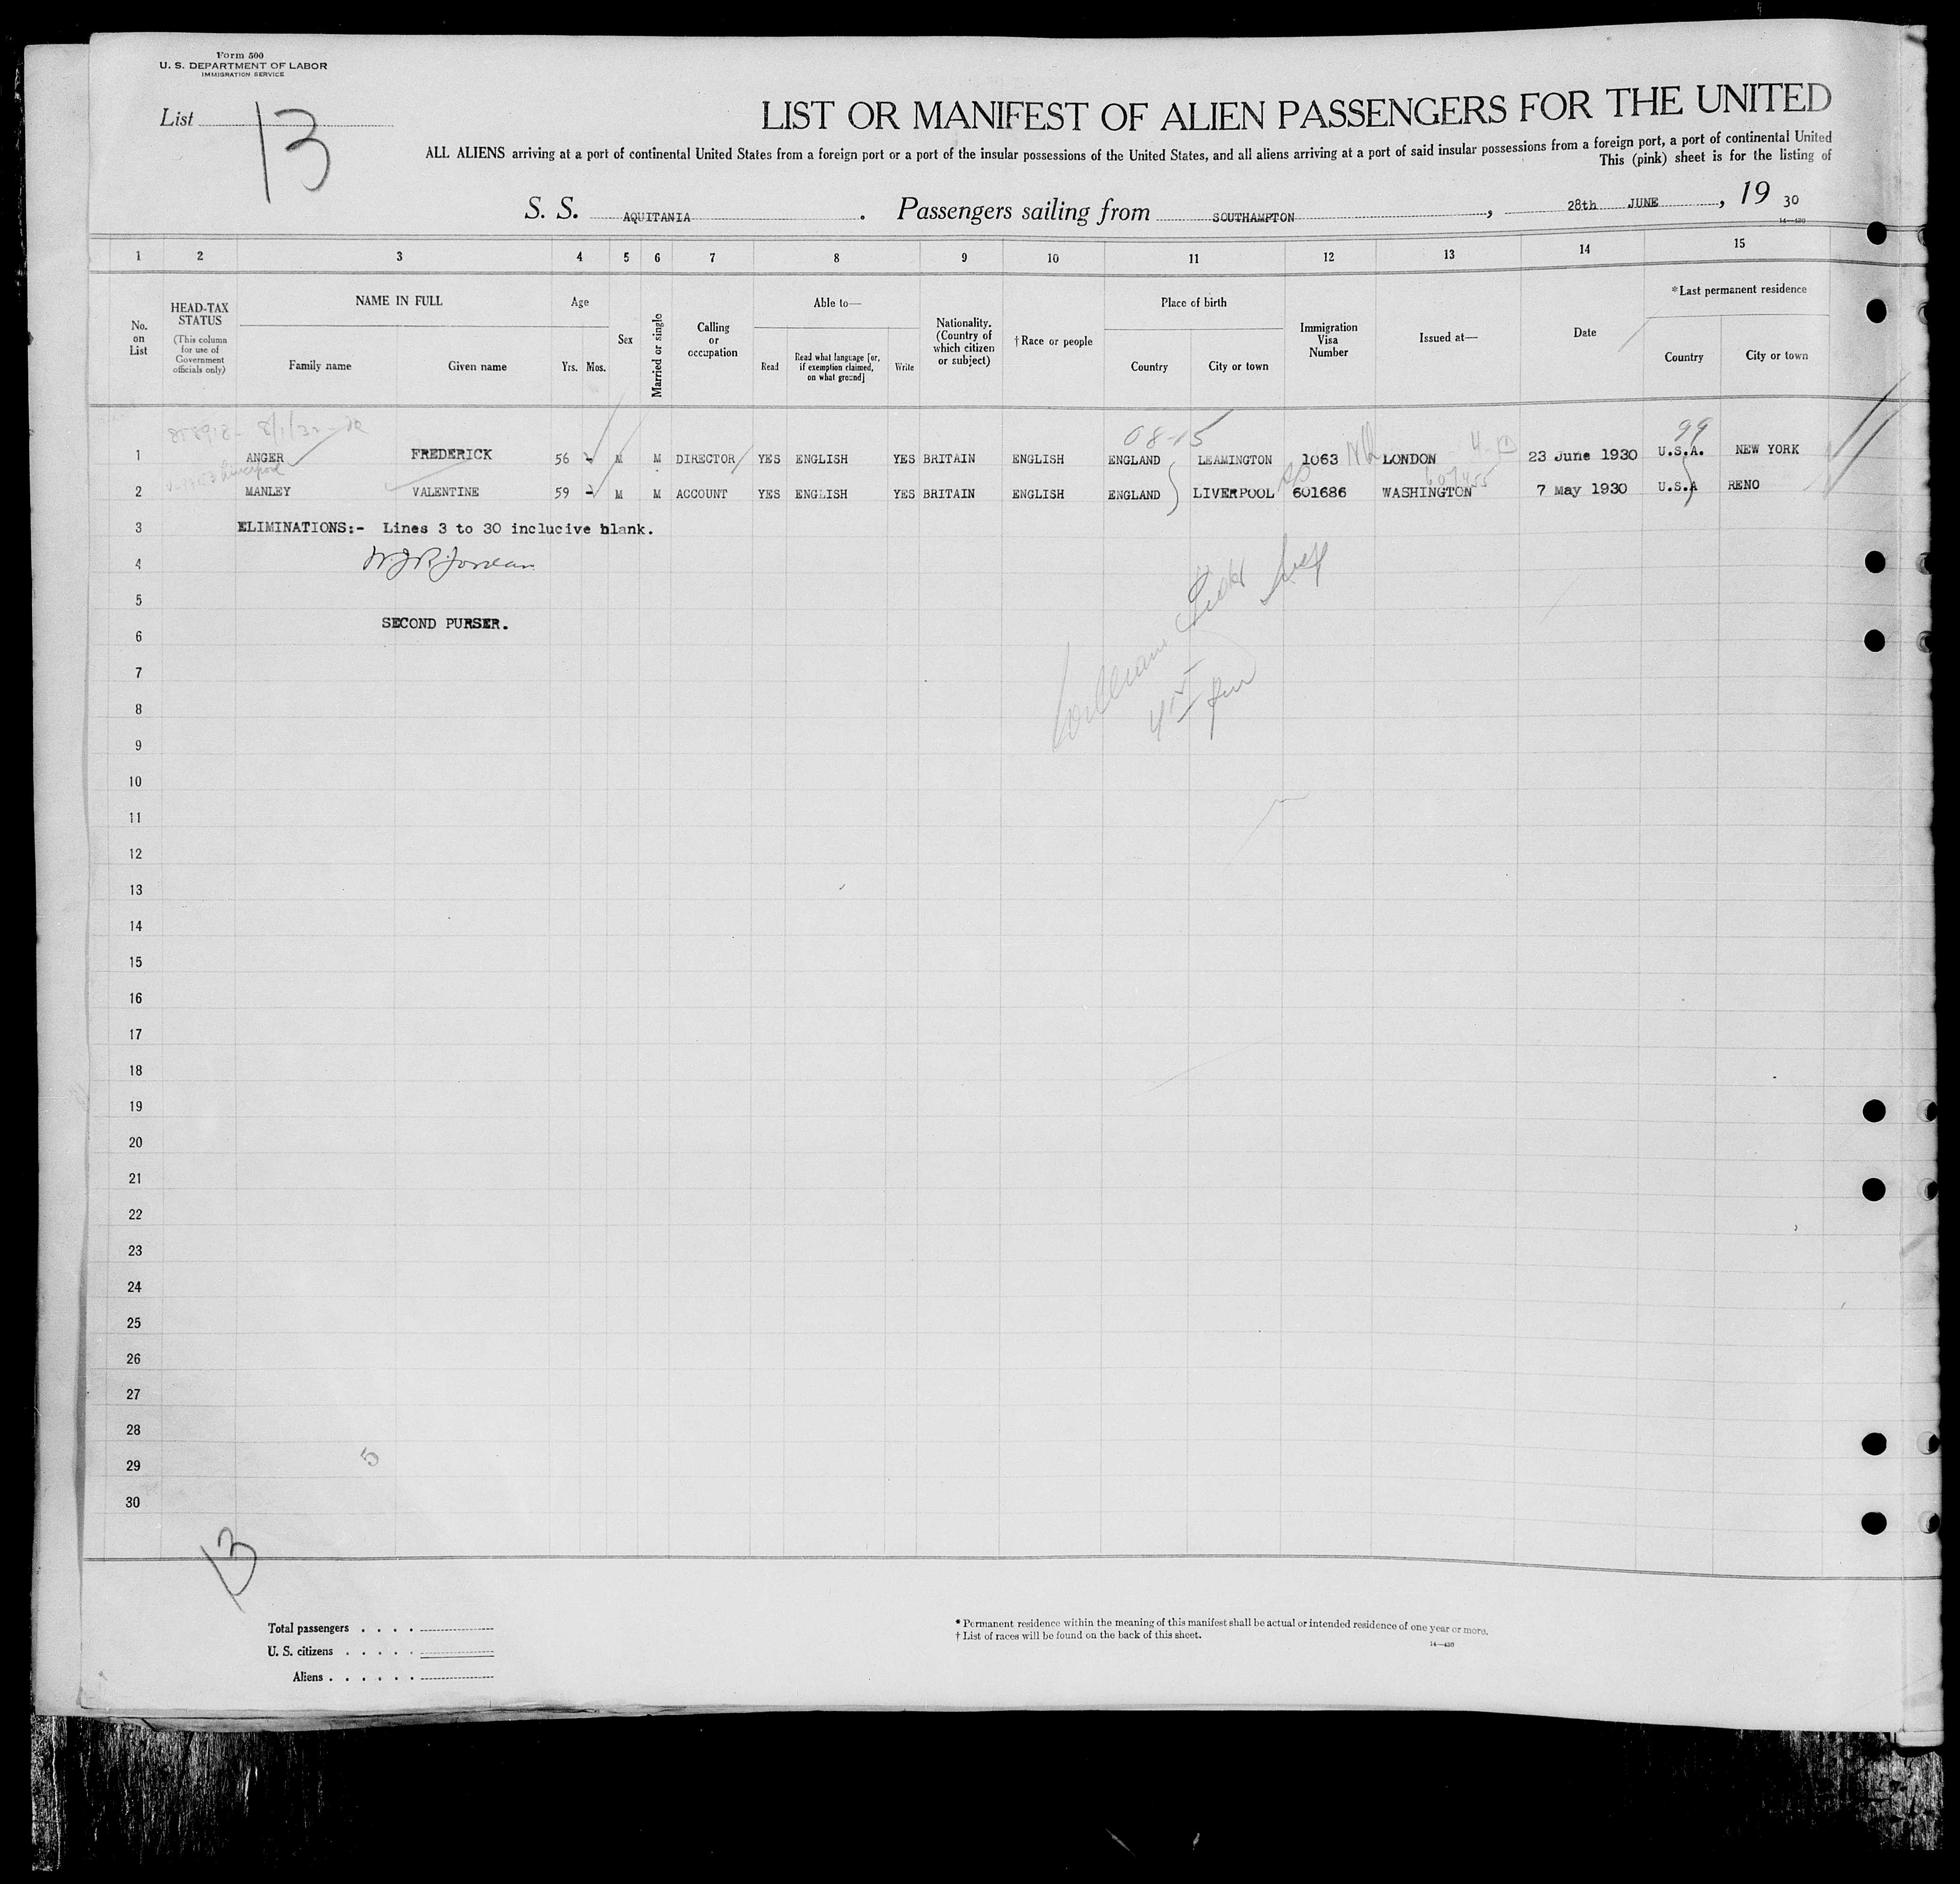 Form 500
U. S. DEPARTMENT OF LABOR
IMMIGRATION SERVICE
List 13
LIST OR MANIFEST OF ALIEN PASSENGERS FOR THE UNITED
ALL ALIENS arriving at a port of continental United States from a foreign port or a port of the insular possessions of the United States, and all aliens arriving at a port of said insular possessions from a foreign port, a port of continental United
This (pink) sheet is for the listing of
S. S. AQUITANIA . Passengers sailing from SOUTHAMPTON , 28th JUNE , 19 30
14—430
1 2 3 4 5 6 7 8 9 10 11 12 13 14 15
No. on List
HEAD-TAX STATUS
(This column for use of Government officials only)
NAME IN FULL
Family name Given name
Age
Yrs. Mos.
Sex
Married or single
Calling or occupation
Able to—
Read
Read what language [or, if exemption claimed, on what ground]
Write
Nationality. (Country of which citizen or subject)
†Race or people
Place of birth
Country City or town
Immigration Visa Number
Issued at—
Date
*Last permanent residence
Country City or town
08-15 99
1 ANGER FREDERICK 56 - M M DIRECTOR YES ENGLISH YES BRITAIN ENGLISH ENGLAND LEAMINGTON 1063 LONDON 23 June 1930 U.S.A. NEW YORK
2 MANLEY VALENTINE 59 - M M ACCOUNT YES ENGLISH YES BRITAIN ENGLISH ENGLAND LIVERPOOL 601686 WASHINGTON 7 May 1930 U.S.A RENO
3 ELIMINATIONS:- Lines 3 to 30 inclucive blank.
4 W J R Jordan
5
SECOND PURSER.
6
7
8
9
10
11
12
13
14
15
16
17
18
19
20
21
22
23
24
25
26
27
28
5
29
30
13
Total passengers . . . .
U. S. citizens . . . . .
Aliens . . . . . .
* Permanent residence within the meaning of this manifest shall be actual or intended residence of one year or more.
† List of races will be found on the back of this sheet.
14—430